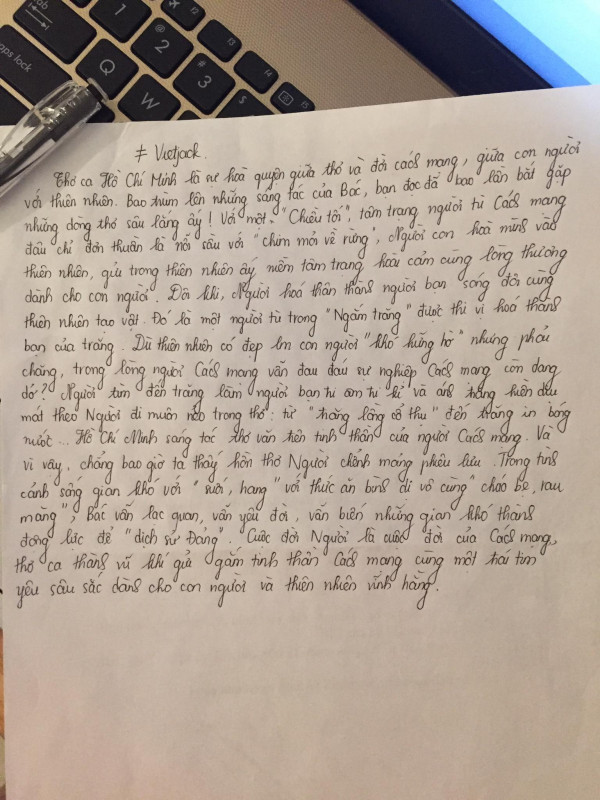 tab
F2
F3
F4
F5
caps lock
Q
W
@
2
#
3
$
≠ Vietjack.
Thơ ca Hồ Chí Minh là sự hoà quyện giữa thơ và đời cách mạng, giữa con người
với thiên nhiên. Bao trùm lên những sáng tác của Bác, bạn đọc đã bao lần bắt gặp
những dòng thơ sâu lắng ấy! Với một "Chiều tối", tâm trạng người tù Cách mạng
đâu chỉ đơn thuần là nỗi sầu với "chim mỏi về rừng", Người còn hoà mình vào
thiên nhiên, gửi trong thiên nhiên ấy niềm tâm trạng hoài cảm cùng lòng thương
dành cho con người. Đôi khi, Người hoá thân thành người bạn song đôi cùng
thiên nhiên tạo vật. Đó là một người tù trong "Ngắm trăng" được thi vị hoá thành
bạn của trăng. Dù thiên nhiên có đẹp làm con người "khó hững hờ" nhưng phải
chăng, trong lòng người Cách mạng vẫn đau đáu sự nghiệp Cách mạng còn dang
dở? Người tìm đến trăng làm người bạn tri âm tri kỉ và ánh trăng hiền dịu
mát theo Người đi muôn nẻo trong thơ: từ "trăng lồng cổ thụ" đến trăng in bóng
nước... Hồ Chí Minh sáng tác thơ văn trên tinh thần của người Cách mạng. Và
vì vậy, chẳng bao giờ ta thấy hồn thơ Người chênh mảng phiêu lưu. Trong tình
cảnh sống gian khó với "suối, hang" với thức ăn bình dị vô cùng "cháo bẹ, rau
măng", Bác vẫn lạc quan, vẫn yêu đời, vẫn biến những gian khó thành
động lực để "dịch sử Đảng". Cuộc đời Người là cuộc đời của Cách mạng,
thơ ca thành vũ khí gửi gắm tinh thần Cách mạng cùng một trái tim
yêu sâu sắc dành cho con người và thiên nhiên vĩnh hằng.